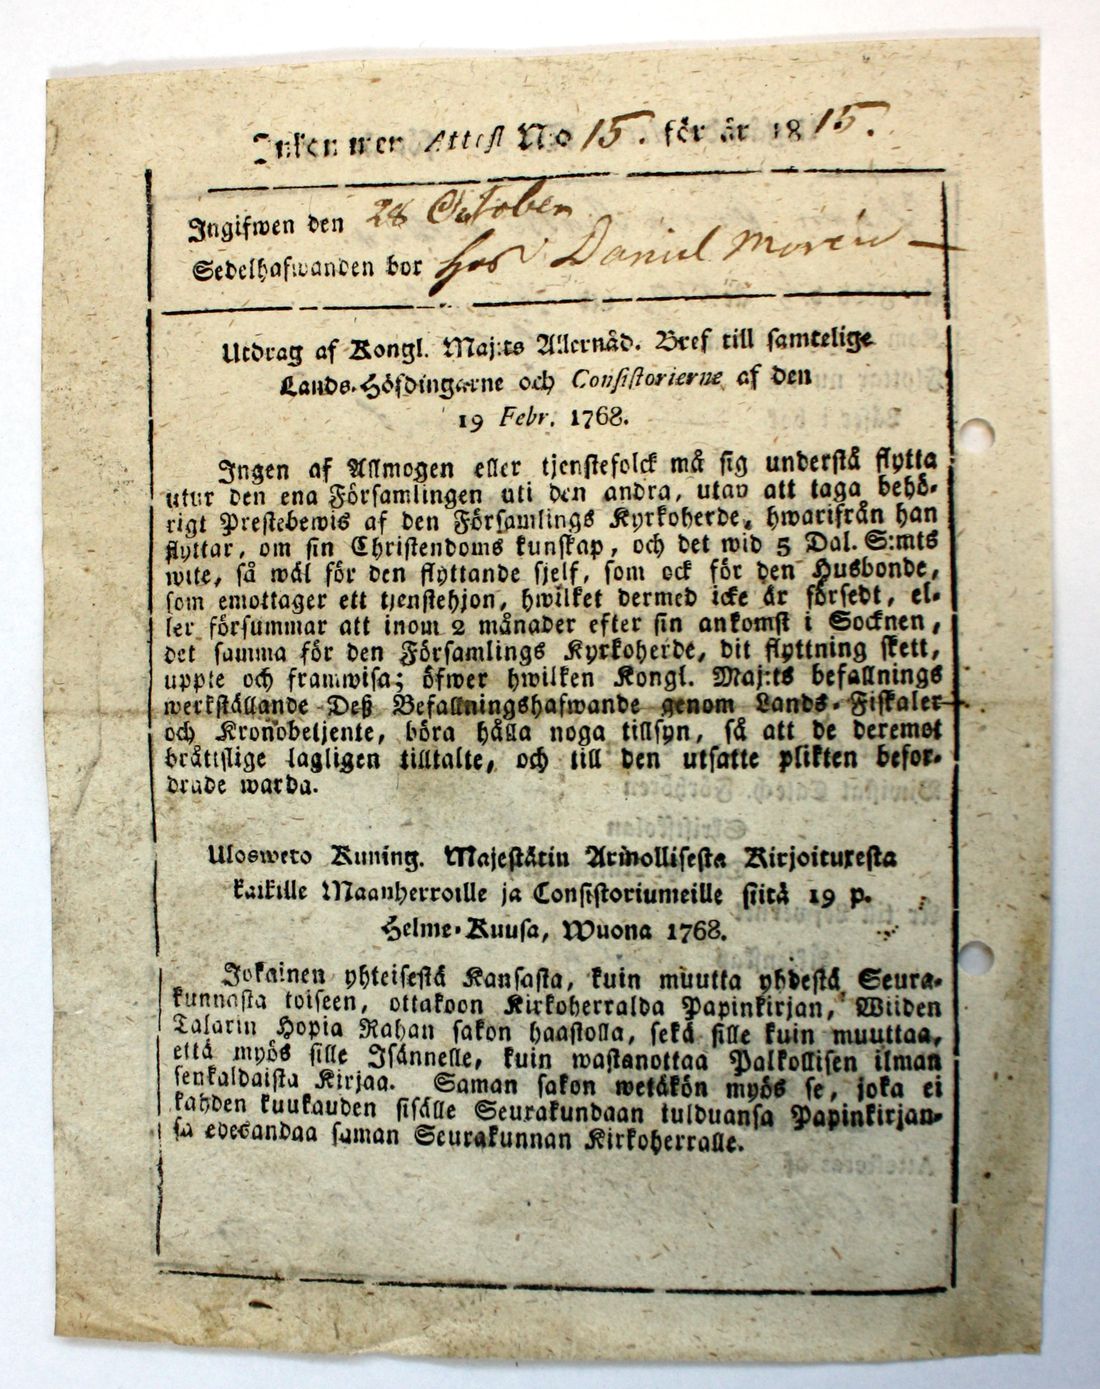 Inkommer Attest No 15. för år 1815.
Ingifwen den 28 October
Sedelhafwanden bor hos Daniel Morén
Utdrag af Kongl. Maj:ts Allernåd. Bref till samtelige
Lands-Höfdingarne och Consistorierne af den
19 Febr. 1768.
Ingen af Allmogen eller tjenstefolck må sig understå flytta
utur den ena Församlingen uti den andra, utan att taga behö-
rigt Prestebewis af den Församlings Kyrkoherde, hwarifrån han
flyttar, om sin Christendoms kunskap, och det wid 5 Dal. S:mts
wite, så wäl för den flyttande sjelf, som ock för den Husbonde,
som emottager ett tjenstehjon, hwilket dermed icke är försedt, el-
ler försummar att inom 2 månader efter sin ankomst i Socknen,
det samma för den Församlings Kyrkoherde, dit flyttning skett,
uppte och framwisa; öfwer hwilken Kongl. Maj:ts befallnings
werkställande Deß Befallningshafwande genom Lands-Fiskaler
och Kronobetjente, böra hålla noga tillsyn, så att de deremot
bråttslige lagligen tilltalte, och till den utsatte plikten befor-
drade warda.
Ulosweto Kuning. Majestätin Armollisesta Kirjoituxesta
kaikille Maanherroille ja Consistoriumeille siitä 19 p.
Helme-Kuusa, Wuona 1768.
Jokainen yhteisestä Kansasta, kuin muutta yhdestä Seura-
kunnasta toiseen, ottakoon Kirkoherralda Papinkirjan, Wiiden
Talarin Hopia Rahan sakon haastolla, sekä sille kuin muuttaa,
että myös sille Isännelle, kuin wastanottaa Palkollisen ilman
senkaldaista Kirjaa. Saman sakon wetäkön myös se, joka ei
kahden kuukauden sisälle Seurakundaan tulduansa Papinkirjan-
sa edesandaa saman Seurakunnan Kirkoherralle.